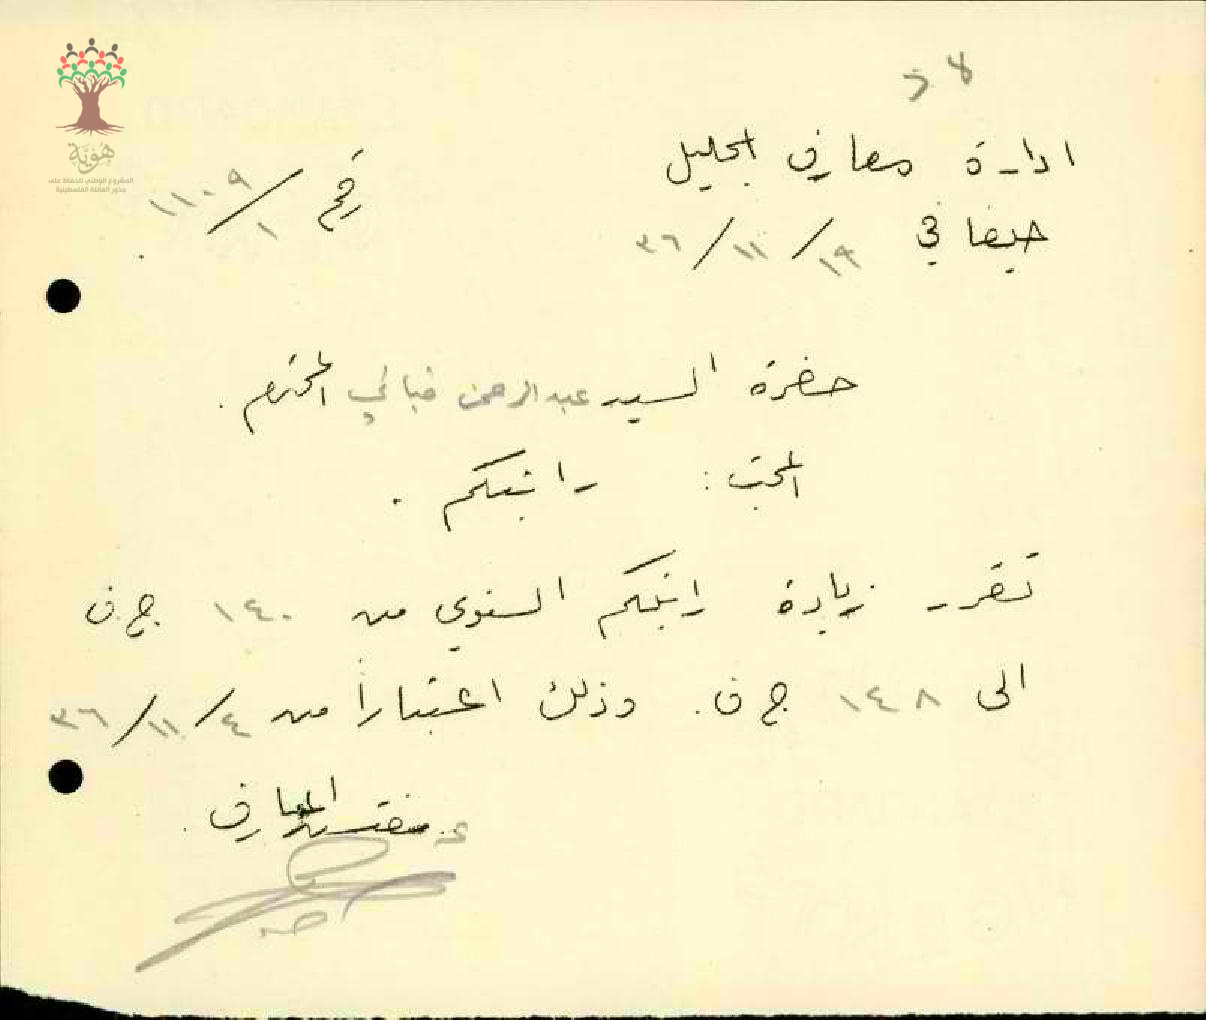 هوية
المشروع الوطني للحفاظ على
جذور العائلة الفلسطينية
ادارة معارف الجليل
رقم ١/١١٠٩
حيفا في ١٩/١١/٣٦
حضرة السيد عبد الرحمن المحترم.
المبحث: راتبكم.
تقرر زيادة راتبكم السنوي من ١٤٠ ج.ف
الى ١٤٨ ج.ف. وذلك اعتباراً من ٤/١١/٣٦
مفتش المعارف.